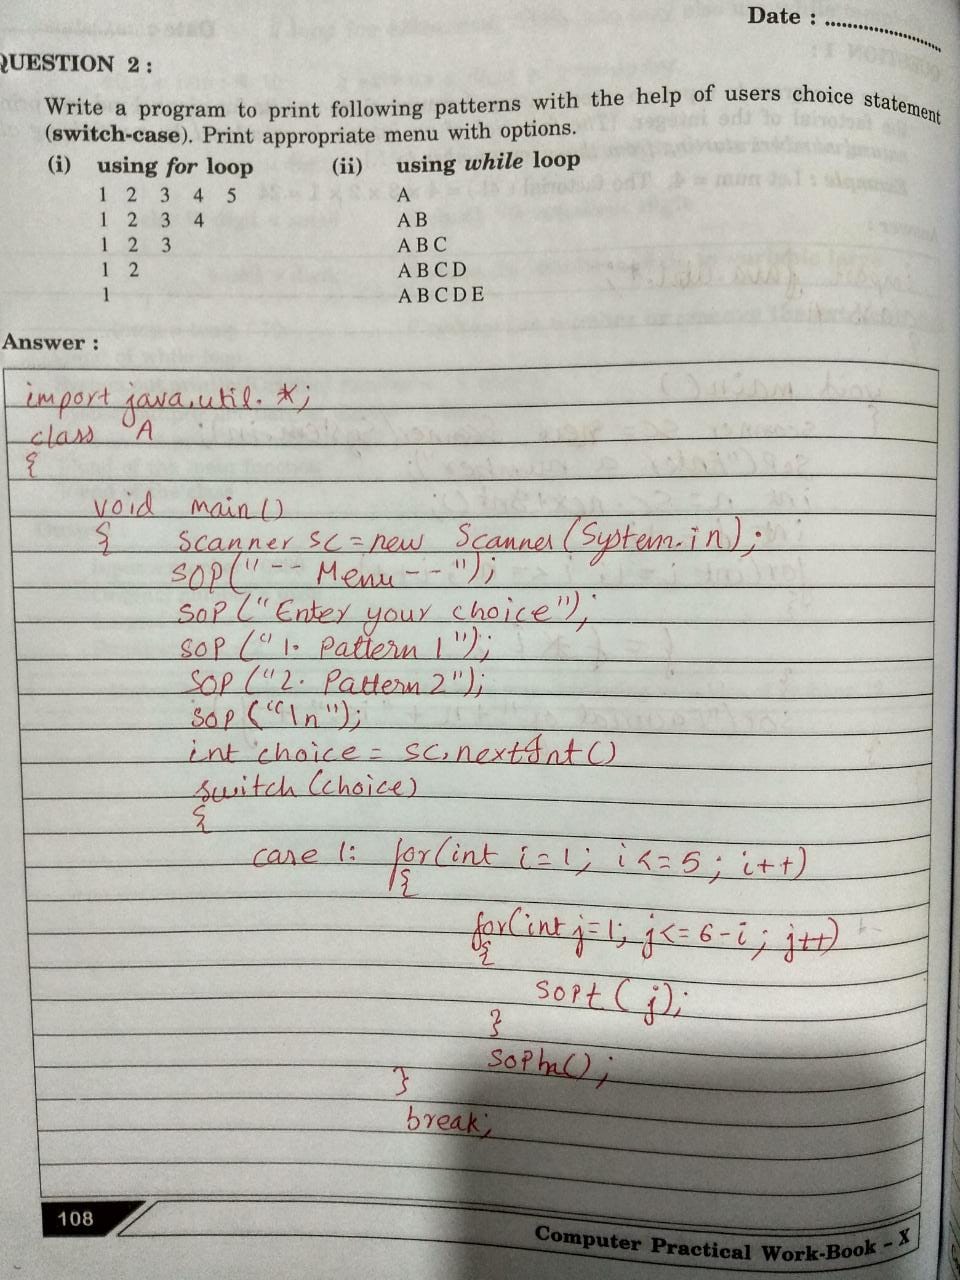 Date : ....................
QUESTION 2 :
Write a program to print following patterns with the help of users choice statement
(switch-case). Print appropriate menu with options.
(i) using for loop (ii) using while loop
1 2 3 4 5 A
1 2 3 4 A B
1 2 3 A B C
1 2 A B C D
1 A B C D E
Answer :
import java.util.*;
class A
{
void main()
{ Scanner sc = new Scanner (System.in);
SOP("-- Menu --");
SOP("Enter your choice");
SOP("1. Pattern 1");
SOP("2. Pattern 2");
SOP("\n");
int choice = sc.nextInt()
switch (choice)
{
case 1: for(int i=1; i<=5; i++)
{
for(int j=1; j<=6-i; j++)
{
SOPt(j);
}
SOPln();
}
break;
108
Computer Practical Work-Book – X